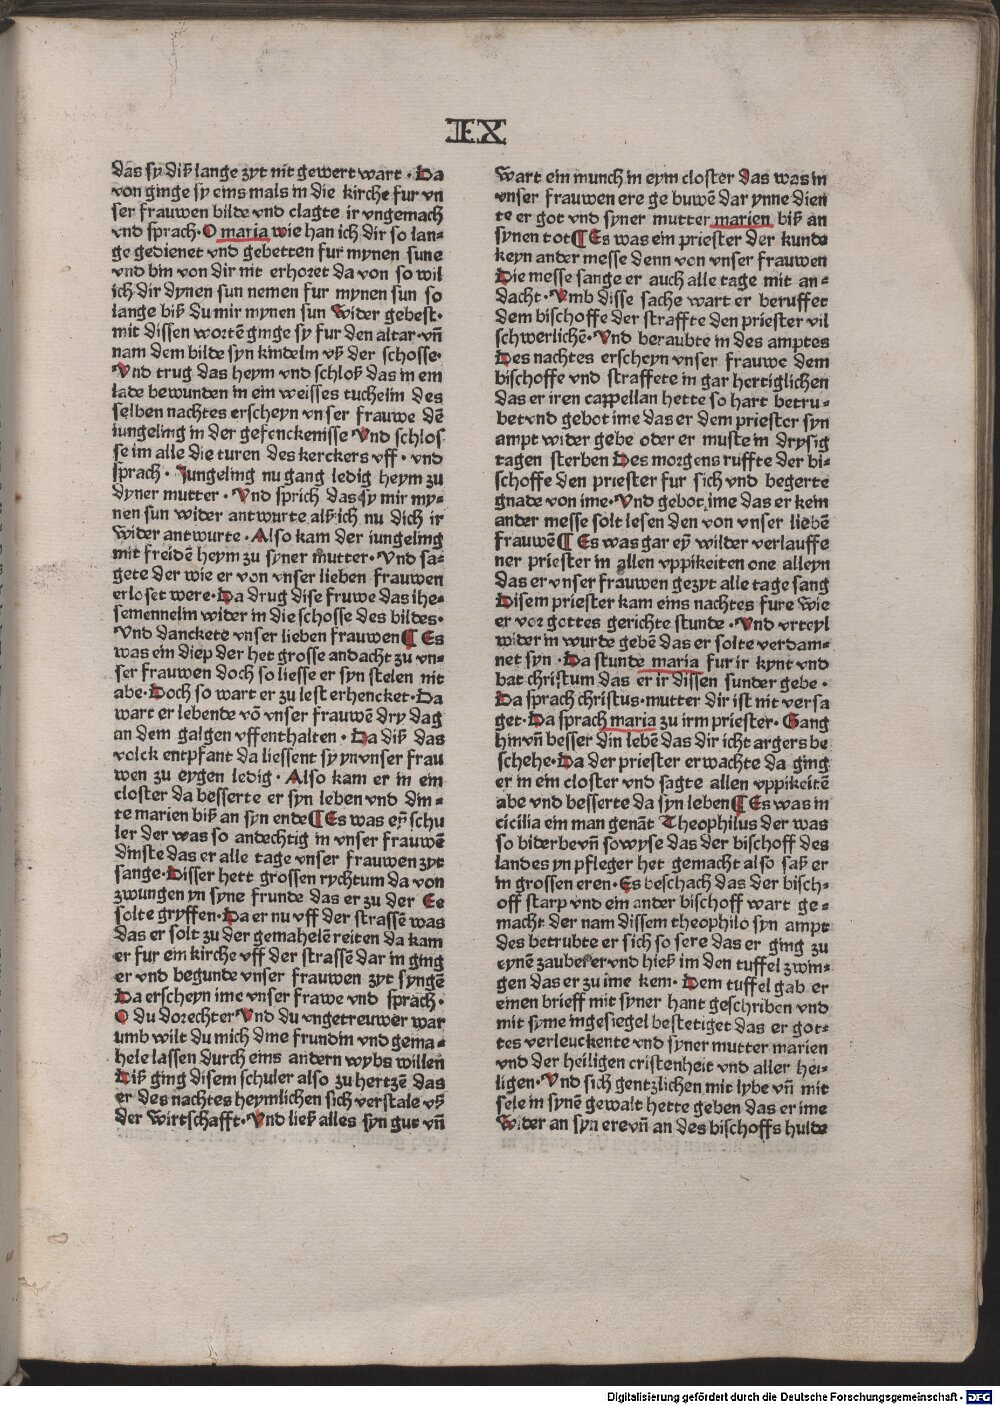 IX
das sy diß lange zyt nit gewert wart · Da
von ginge sy eins mals in die kirche fur vn
ser frauwen bilde vnd clagte ir vngemach
vnd sprach· O maria wie han ich dir so lan-
ge gedienet vnd gebetten fur mynen sune
vnd bin von dir nit erhoret da von so wil
ich dir dynen sun nemen fur mynen sun so
lange biß du mir mynen sun Wider gebest·
mit dissen wortē ginge sy fur den altar·vn̄
nam dem bilde syn kindelin vß der schosse·
Vnd trug das heym vnd schloß das in ein
lade bewunden in ein weisses tuchelin des
selben nachtes erscheyn vnser frauwe dē
iungeling in der gefenckenisse Vnd schlos
se im alle die turen des kerckers vff · vnd
sprach · Jungeling nu gang ledig heym zu
dyner mutter · Vnd sprich das sy mir my-
nen sun wider antwurte alß ich nu dich ir
Wider antwurte · Also kam der iungeling
mit freidē heym zu syner mutter· Vnd sa-
gete der wie er von vnser lieben frauwen
erloset were· Da drug dise fruwe das ihe-
semennelin wider in die schosse des bildes·
Vnd danckete vnser lieben frauwen ¶ Es
was ein diep der het grosse andacht zu vn-
ser frauwen doch so liesse er syn stelen nit
abe· Doch so wart er zu lest erhencket· Da
wart er lebende vō vnser frauwē dry dag
an dem galgen vffenthalten · Da diß das
volck entpfant da liessent sy yn vnser frau
wen zu eygen ledig · Also kam er in ein
closter da besserte er syn leben vnd din-
te marien biß an syn ende ¶ Es was eyn̄ schu
ler der was so andechtig in vnser frauwē
dinste das er alle tage vnser frauwen zyt
sange· Disser hett grossen rychtum da von
zwungen yn syne frunde das er zu der Ee
solte gryffen· Da er nu vff der strassē was
das er solt zu der gemahelē reiten da kam
er fur ein kirche vff der strassē dar in ging
er vnd begunde vnser frauwen zyt syngē
Da erscheyn ime vnser frawe vnd sprach·
O du dorechter Vnd du vngetreuwer war
umb wilt du mich dine frundin vnd gema-
hele lassen durch eins andern wybs willen
Diß ging disem schuler also zu hertzē das
er des nachtes heymlichen sich verstale vß
der Wirtschafft· Vnd ließ alles syn gut vn̄
wart ein munch in eym closter das was in
vnser frauwen ere ge buwē dar ynne dien
te er got vnd syner mutter marien biß an
synen tot ¶ Es was ein priester der kunde
keyn ander messe denn von vnser frauwen
Die messe sange er auch alle tage mit an-
dacht· Vmb disse sache wart er beruffet
dem bischoffe der straffte den priester vil
schwerlichē· Vnd beraubte in des amptes
Des nachtes erscheyn vnser frauwe dem
bischoffe vnd straffete in gar hertiglichen
das er iren cappellan hette so hart betru-
bet vnd gebot ime das er dem priester syn
ampt wider gebe oder er muste in drysig
tagen sterben Des morgens ruffte der bi-
schoffe den priester fur sich vnd begerte
gnade von ime· Vnd gebot ime das er kein
ander messe solt lesen den von vnser liebē
frauwē ¶ Es was gar eyn̄ wilder verlauffe
ner priester in allen vppikeiten one alleyn
das er vnser frauwen gezyt alle tage sang
Disem priester kam eins nachtes fure wie
er vor gottes gerichte stunde · Vnd vrteyl
wider in wurde gebē das er solte verdam-
net syn · Da stunde maria fur ir kynt vnd
bat christum das er ir dissen sunder gebe ·
Da sprach christus· mutter dir ist nit versa
get· Da sprach maria zu irm priester· Gang
hin vn̄ besser din lebē das dir icht argers be
schehe· Da der priester erwachte da ging
er in ein closter vnd sagte allen vppikeitē
abe vnd besserte da syn leben ¶ Es was in
cicilia ein man genāt Theophilus der was
so biderbe vn̄ so wyse das der bischoff des
landes yn pfleger het gemacht also saß er
in grossen eren· Es beschach das der bisch-
off starp vnd ein ander bischoff wart ge-
macht der nam dissem theophilo syn ampt
des betrubte er sich so sere das er ging zu
eynē zauberer vnd hieß im den tuffel zwin-
gen das er zu ime kem· Dem tuffel gab er
einen brieff mit syner hant geschriben vnd
mit syme ingesiegel bestetiget das er got-
tes verleuckente vnd syner mutter marien
vnd der heiligen cristenheit vnd aller hei-
ligen· Vnd sich gentzlichen mit lybe vn̄ mit
sele in synē gewalt hette geben das er ime
Wider an syn ere vn̄ an des bischoffs hulde
Digitalisierung gefördert durch die Deutsche Forschungsgemeinschaft - DFG